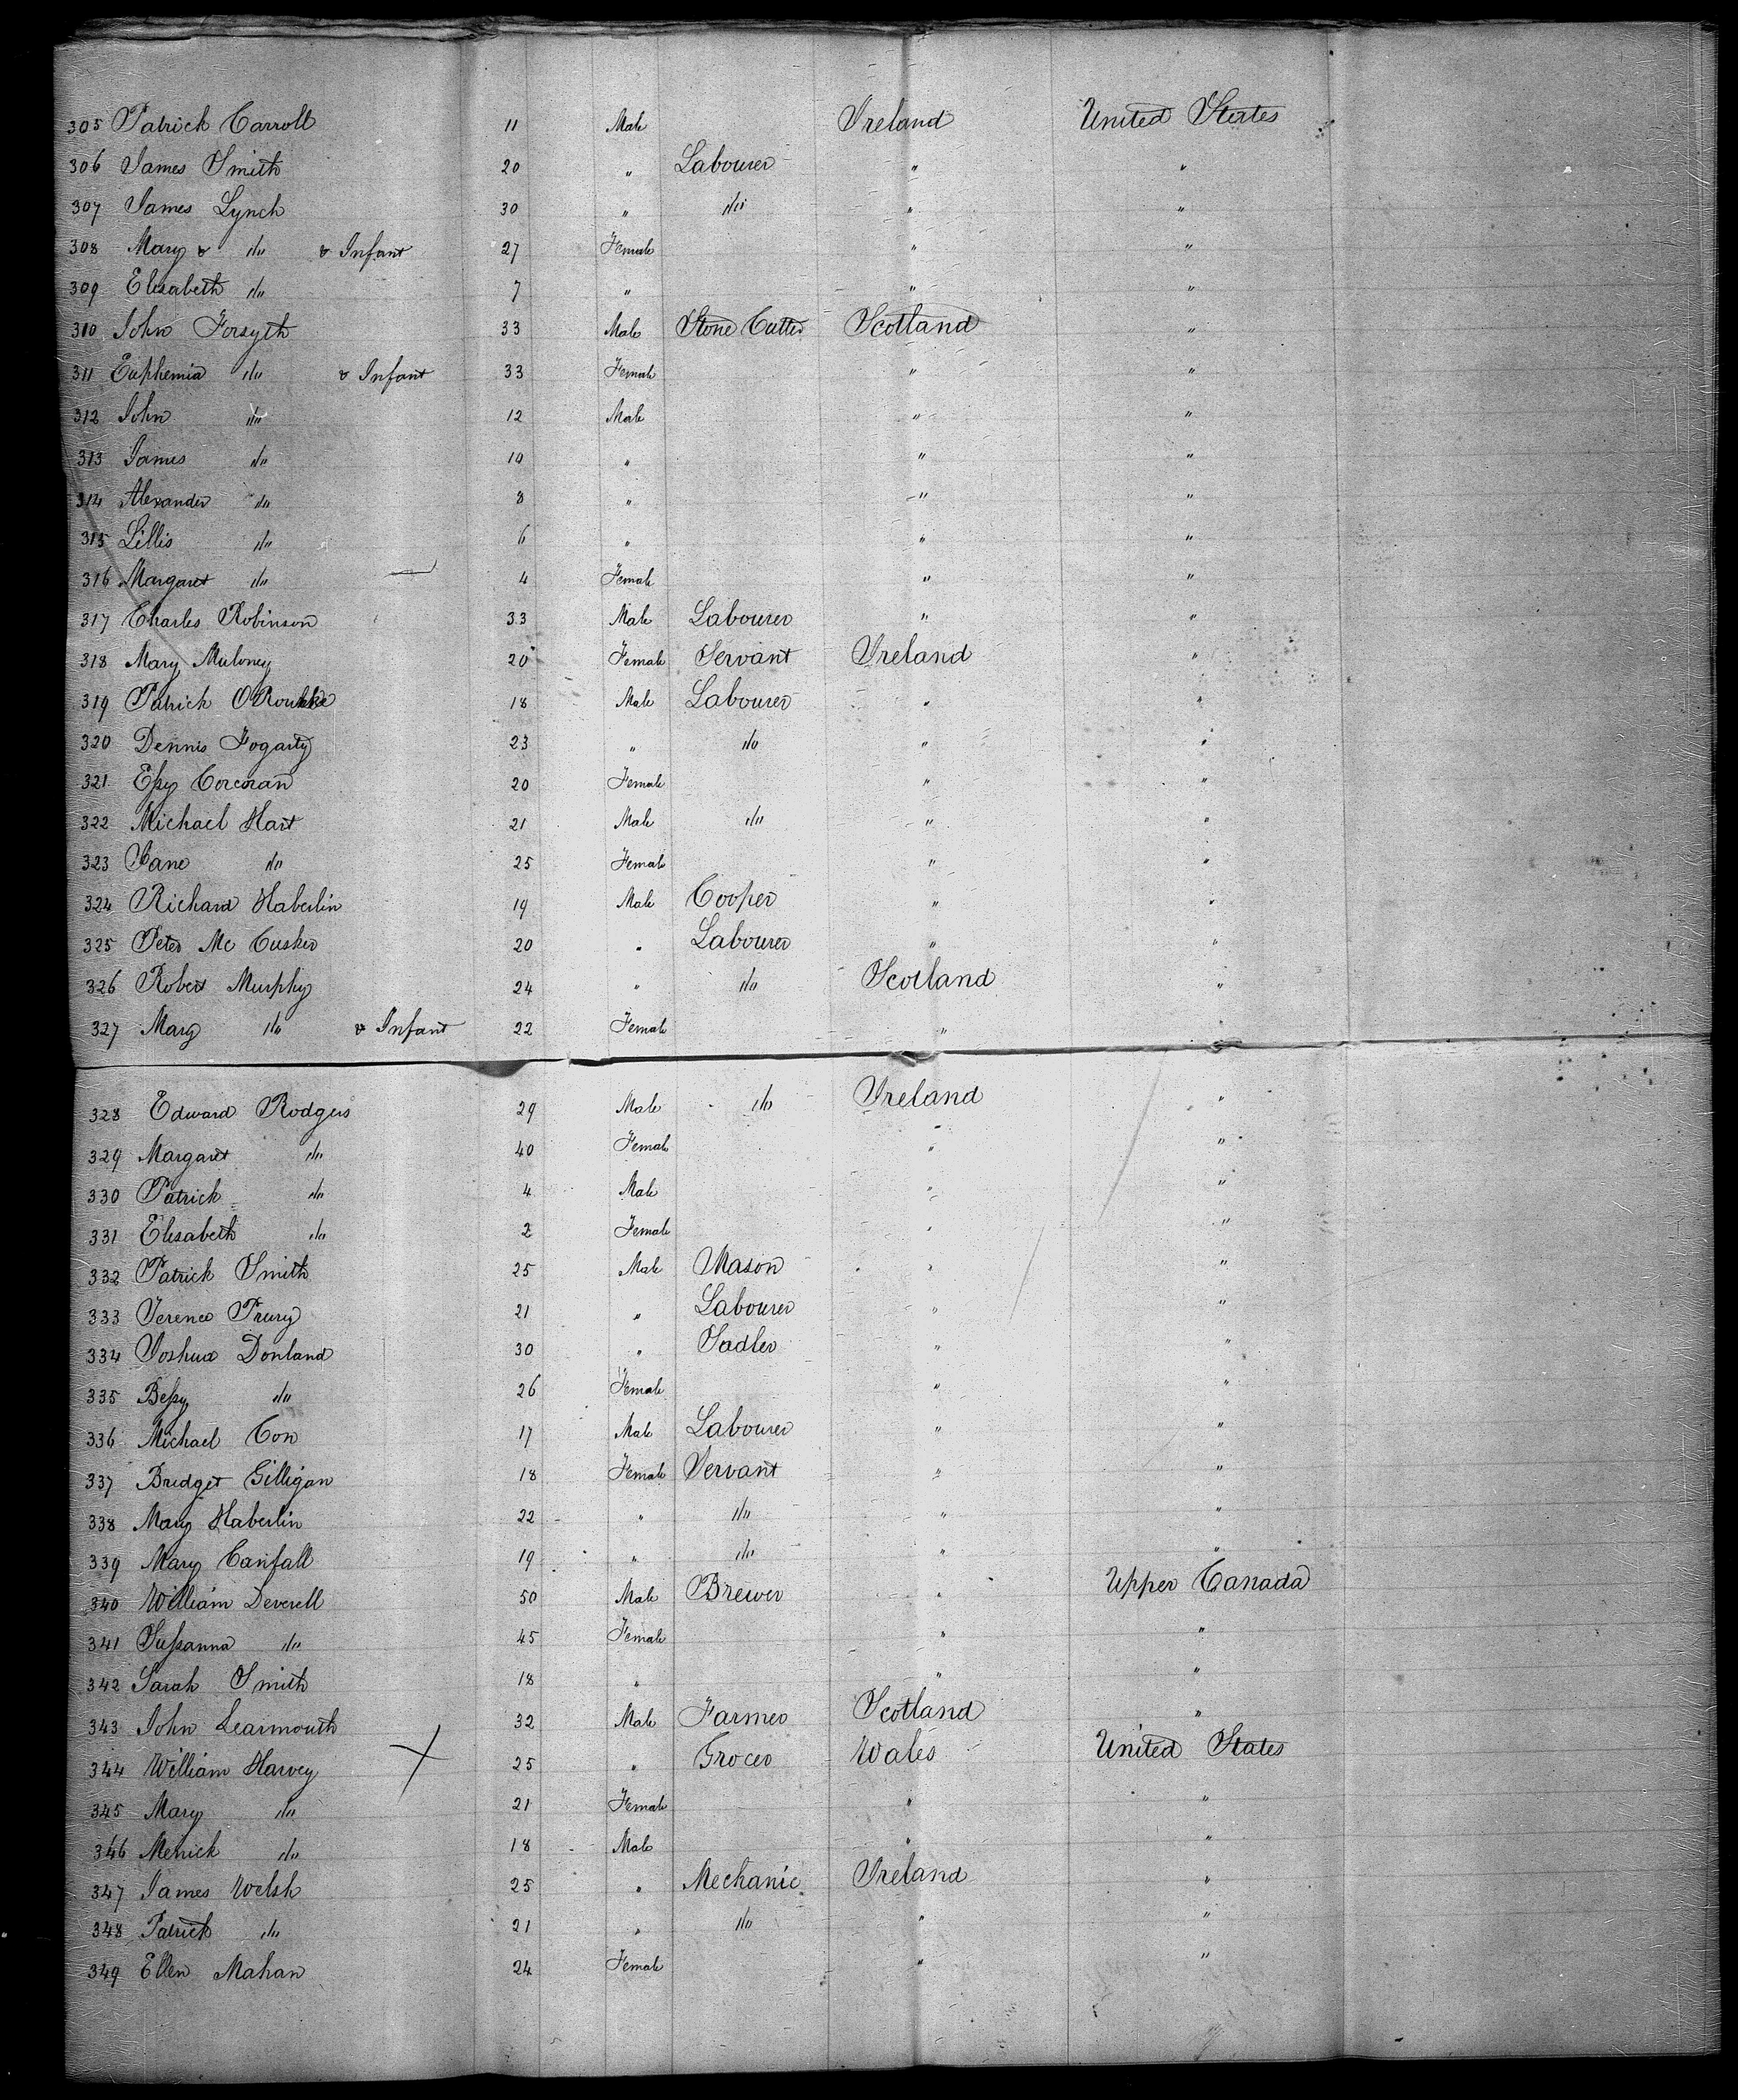 305 Patrick Carroll 11 Male Ireland United States
306 James Smith 20 " Labourer " "
307 James Lynch 30 " do " "
308 Mary & do & Infant 27 Female " "
309 Elisabeth do 7 " " "
310 John Forsyth 33 Male Stone Cutter Scotland "
311 Euphemia do & Infant 33 Female " "
312 John do 12 Male " "
313 James do 10 " " "
314 Alexander do 8 " " "
315 Lillis do 6 " " "
316 Margaret do 4 Female " "
317 Charles Robinson 33 Male Labourer " "
318 Mary Muloney 20 Female Servant Ireland "
319 Patrick O'Rourke 18 Male Labourer " "
320 Dennis Fogarty 23 " do " "
321 Essy Corcoran 20 Female " "
322 Michael Hart 21 Male do " "
323 Jane do 25 Female " "
324 Richard Haberlin 19 Male Cooper " "
325 Peter Mc Cusker 20 " Labourer " "
326 Robert Murphy 24 " do Scotland "
327 Mary do & Infant 22 Female " "
328 Edward Rodgers 29 Male do Ireland "
329 Margaret do 40 Female " "
330 Patrick do 4 Male " "
331 Elisabeth do 2 Female " "
332 Patrick Smith 25 Male Mason " "
333 Terence Prury 21 " Labourer " "
334 Joshua Donland 30 " Sadler " "
335 Bessy do 26 Female " "
336 Michael Cox 17 Male Labourer " "
337 Bridget Gilligan 18 Female Servant " "
338 Mary Haberlin 22 " do " "
339 Mary Canfall 19 " do " "
340 William Deverell 50 Male Brewer " Upper Canada
341 Sussanna do 45 Female " "
342 Sarah Smith 18 " " "
343 John Learmouth 32 Male Farmer Scotland "
344 William Harvey 25 " Grocer Wales United States
345 Mary do 21 Female " "
346 Merrick do 18 Male " "
347 James Welsh 25 " Mechanic Ireland "
348 Patrick do 21 " do " "
349 Ellen Mahan 24 Female " "